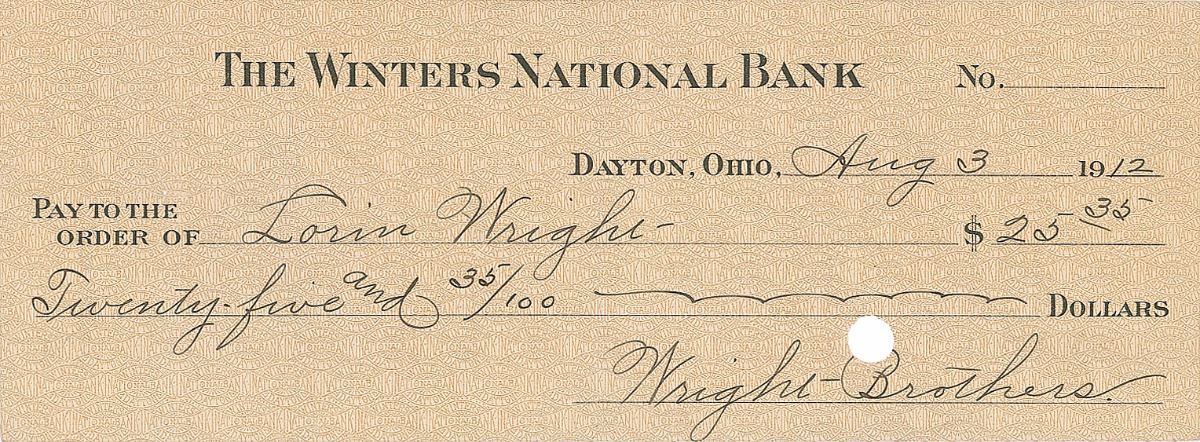 THE WINTERS NATIONAL BANK No.
DAYTON, OHIO, Aug 3 1912
PAY TO THE
ORDER OF Lorin Wright $ 25 35
Twenty-five and 35/100 DOLLARS
Wright Brothers.